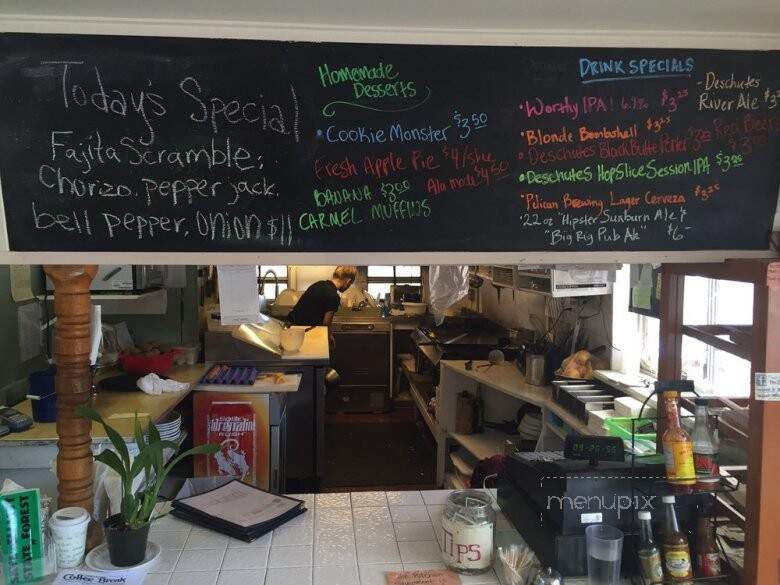 Today's Special
Fajita Scramble;
Chorizo. pepper jack.
bell pepper, onion $11
Homemade
Desserts
• Cookie Monster $3.50
Fresh Apple Pie $4/slice
Ala mode $4.50
BANANA $3.00
CARMEL MUFFINS
DRINK SPECIALS
• Worthy IPA! 6.9% $3.25
• Blonde Bombshell $3.25
• Deschutes Black Butte Porter $3.25
• Deschutes Hop Slice Session IPA $3.25
• Pelican Brewing Lager Cerveza $3.25
• 22 oz "Hipster Sunburn Ale" &
"Big Rig Pub Ale" $6-
- Deschutes
River Ale
Red Beer
RUSH
TIPS
Coffee Break
menupix